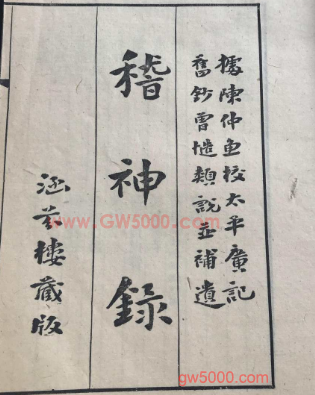 據陳仲魚校太平廣記
舊鈔曾慥類說並補遺
稽神錄
涵芬樓藏版
www.GW5000.com
gw5000.com